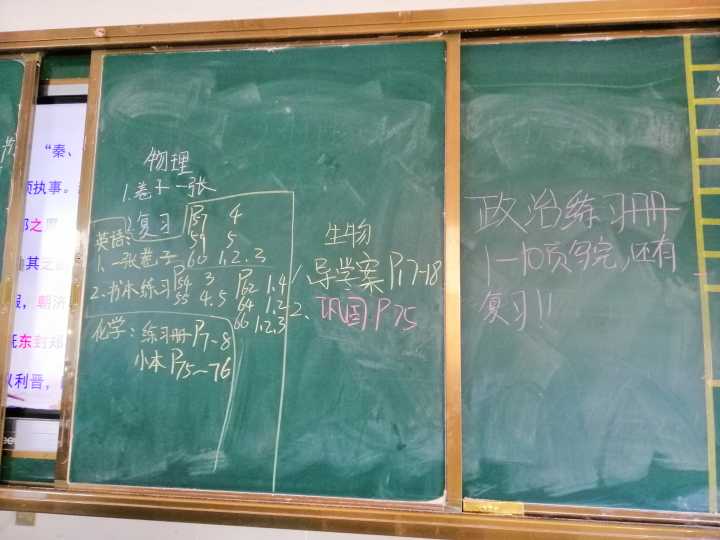 “秦、
执事。
之
其之
朝济
东封郑
以利晋，
物理
1.卷+一张
2.复习 P57 4
59 5
60 1,2,3
英语：
1.一张卷子
2.书本练习 P54 3
55 4.5
P62 1.4
64 1.2
66 1.2.3
化学：练习册P7~8
小本P75~76
生物
1、导学案P17-18
2、巩固P75
政治练习册
1-10页写完，还有
复习!!